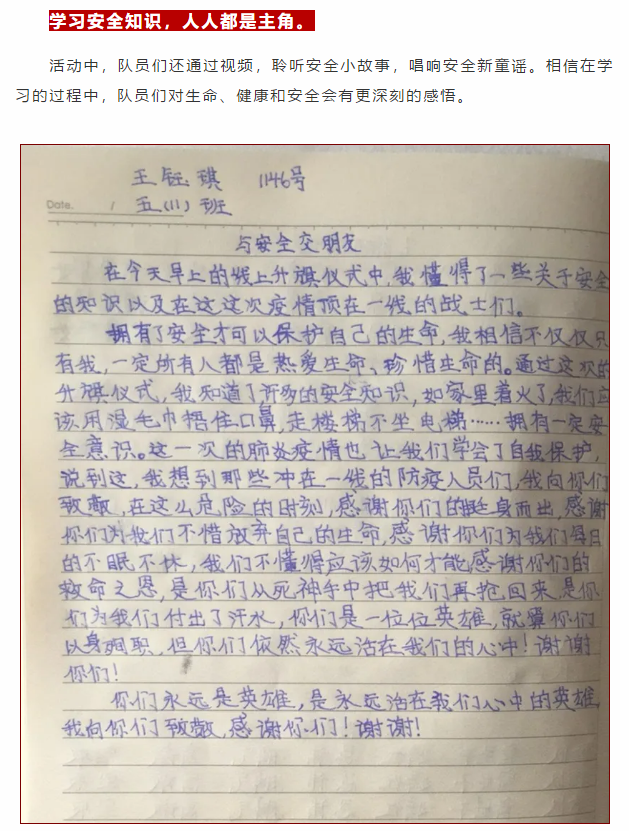 学习安全知识，人人都是主角。
活动中，队员们还通过视频，聆听安全小故事，唱响安全新童谣。相信在学
习的过程中，队员们对生命、健康和安全会有更深刻的感悟。
王钰琪 1146号
Date. /
五（11）班
与安全交朋友
在今天早上的线上升旗仪式中，我懂得了一些关于安全
的知识以及在这这次疫情顶在一线的战士们。
拥有了安全才可以保护自己的生命，我相信不仅仅只
有我，一定所有人都是热爱生命、珍惜生命的。通过这次的
升旗仪式，我知道了许多的安全知识，如家里着火了，我们应
该用湿毛巾捂住口鼻，走楼梯不坐电梯……拥有一定安
全意识。这一次的肺炎疫情也让我们学会了自我保护，
说到这，我想到那些冲在一线的防疫人员们，我向你们
致敬，在这么危险的时刻，感谢你们的挺身而出，感谢
你们为我们不惜放弃自己的生命，感谢你们为我们每日
的不眠不休，我们不懂得应该如何才能感谢你们的
救命之恩，是你们从死神手中把我们再抢回来是你
们为我们付出了汗水，你们是一位位英雄，就算你们
以身殉职，但你们依然永远活在我们的心中！谢谢
你们！
你们永远是英雄，是永远活在我们心中的英雄，
我向你们致敬，感谢你们！谢谢！